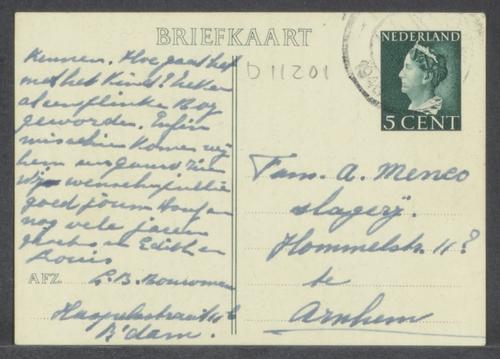 BRIEFKAART
NEDERLAND
5 CENT
D 11201
kennen. Hoe gaat het
met het Kind? zeker
al een flinke Bog
geworden. Enfin
misschien komen wij
hem eens gauw zien
Wij wenschen jullie
goed en hoop
nog vele jaren
groeten Edith en
Louis
AFZ. L. B. Bouwman
B'dam.
Fam. A. Menco
slagerij.
Hommelstr. 11?
te
Arnhem